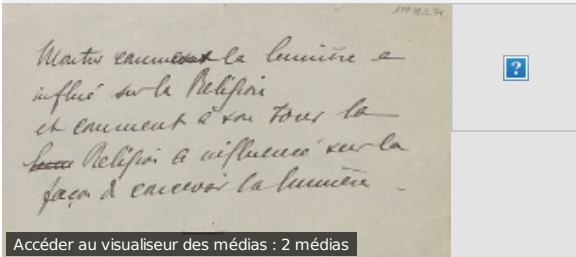 Montrer comment la lumière a
influé sur la Religion
et comment à son tour la
Religion a influencé sur la
façon de concevoir la lumière
Accéder au visualiseur des médias : 2 médias
?